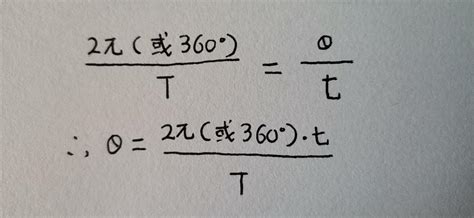 2π(或360°)/T = θ/t
∴ θ = 2π(或360°)·t/T